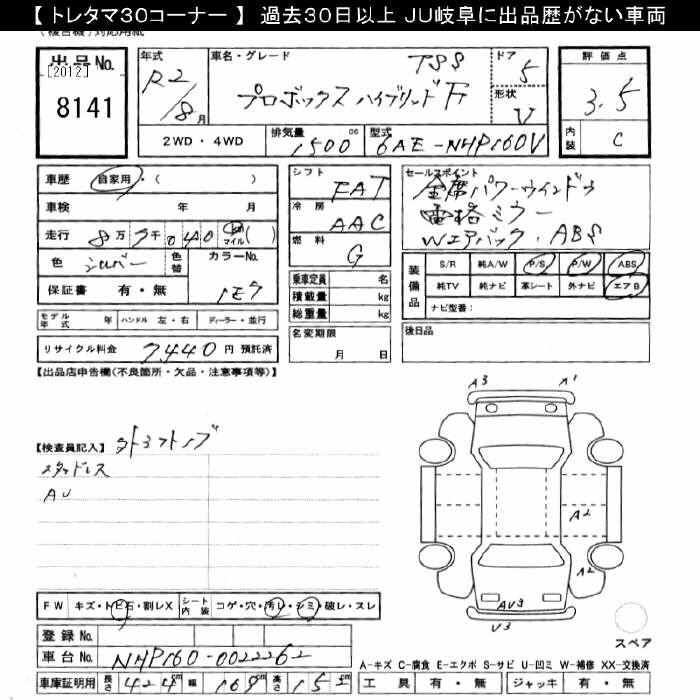 【 トレタマ30コーナー 】 過去30日以上 JU岐阜に出品歴がない車両
出品No.
[2012]
8141
年式
R2/8月
車名・グレード
TSS
プロボックス ハイブリッド F
ドア
5
形状
V
評価点
3.5
内装
C
2WD・4WD
排気量
1500 cc
型式
6AE-NHP160V
車歴 自家用・( )
車検 年 月
走行 8万7千040 km マイル( )
色 シルバー 色替 カラーNo. 1E7
保証書 有・無
シフト FAT
冷房 AAC
燃料 G
乗車定員 名
積載量 kg
総重量 kg
セールスポイント
全席パワーウインドウ
電格ミラー
Wエアバック・ABS
装備品
S/R 純A/W P/S P/W ABS
純TV 純ナビ 革シート 外ナビ エアB
ナビ型番:
モデル年式 年 ハンドル 左・右 ディーラー・並行
名変期限 月 日
後日品
リサイクル料金 7440 円 預託済
【出品店申告欄(不良箇所・欠品・注意事項等)】
【検査員記入】
スタッドレス
AU
A3 A1
A2
A2
AV3
V3
スペア
FW キズ・トビ石・割レX シート内装 コゲ・穴・汚レ・シミ・破レ・スレ
登録No.
車台No. NHP160-0022262
車庫証明用 長さ 424cm 幅 169cm 高さ 152cm
A-キズ C-腐食 E-エクボ S-サビ U-凹ミ W-補修 XX-交換済
工具 有・無 ジャッキ 有・無